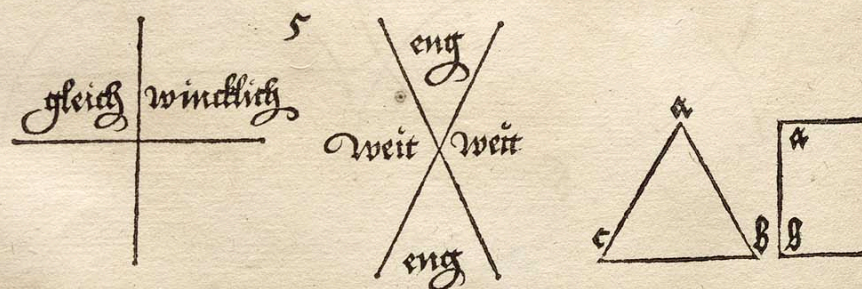 5
gleich wincklich
eng
weit weit
eng
a
c b
a
g